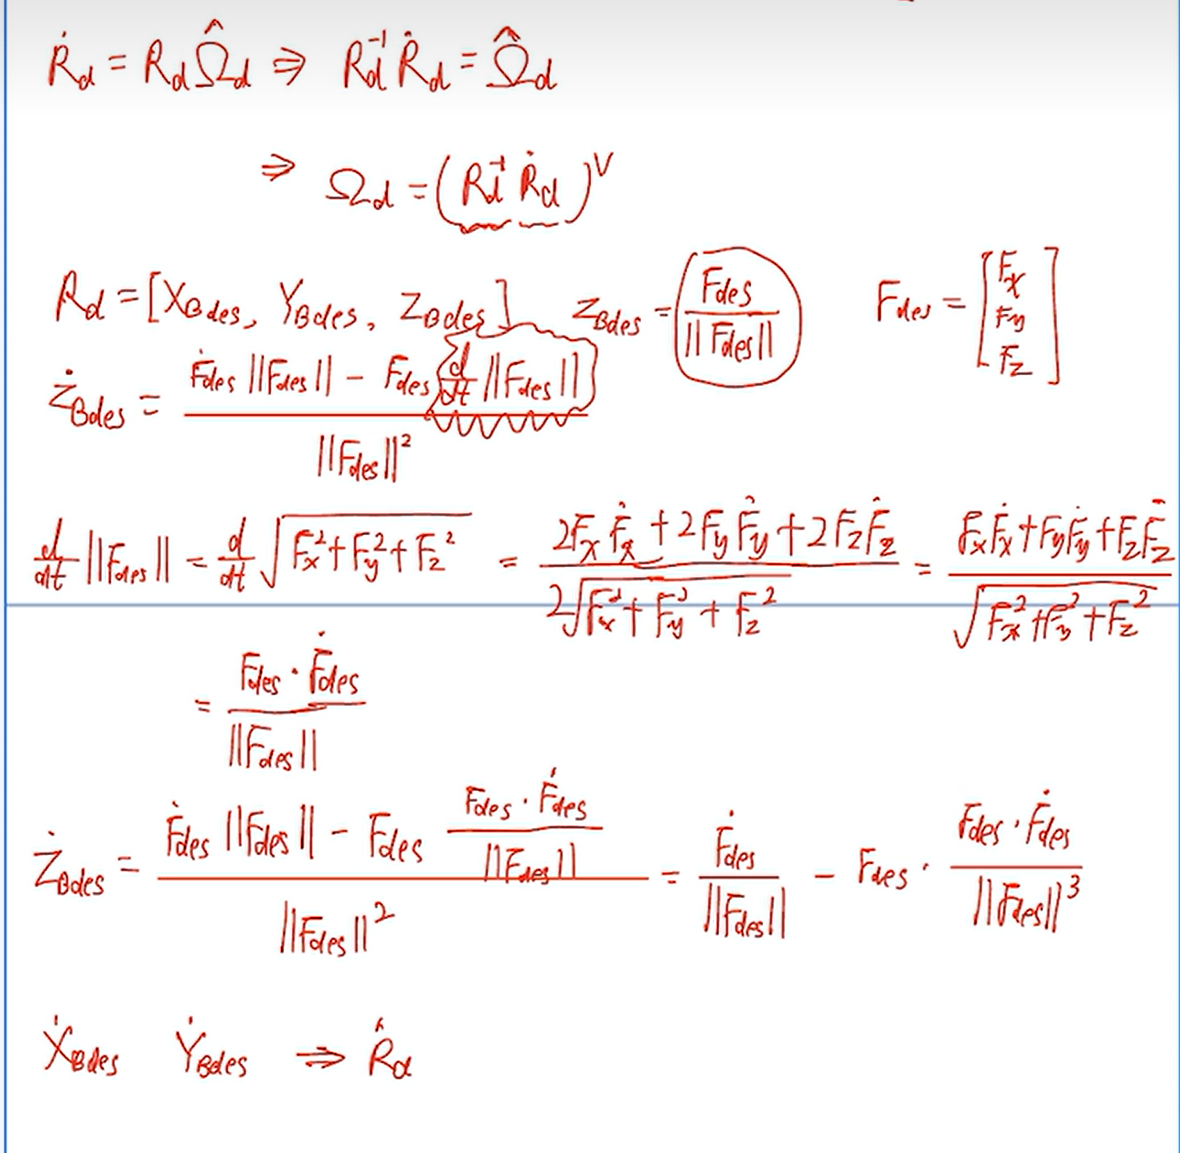 Ṙd = Rd Ω̂d ⇒ Rd⁻¹ Ṙd = Ω̂d
⇒ Ωd = (Rd⁻¹ Ṙd)^V
Rd = [XBdes, YBdes, ZBdes] ZBdes = Fdes / ||Fdes|| Fdes = [Fx Fy Fz]
ŻBdes = (Ḟdes ||Fdes|| − Fdes d/dt ||Fdes||) / ||Fdes||²
d/dt ||Fdes|| = d/dt √(Fx² + Fy² + Fz²) = (2Fx Ḟx + 2Fy Ḟy + 2Fz Ḟz) / (2√(Fx² + Fy² + Fz²)) = (Fx Ḟx + Fy Ḟy + Fz Ḟz) / √(Fx² + Fy² + Fz²)
= (Fdes · Ḟdes) / ||Fdes||
ŻBdes = (Ḟdes ||Fdes|| − Fdes (Fdes · Ḟdes) / ||Fdes||) / ||Fdes||² = Ḟdes / ||Fdes|| − Fdes · (Fdes · Ḟdes) / ||Fdes||³
ẊBdes ẎBdes ⇒ Ṙd